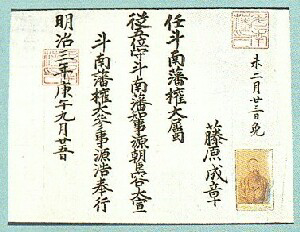 未二月廿三日免
藤原成章
任斗南藩權大屬
從五位守斗南藩知事源朝臣容大宣
斗南藩權大参事源浩奉行
明治三年庚午九月廿五日